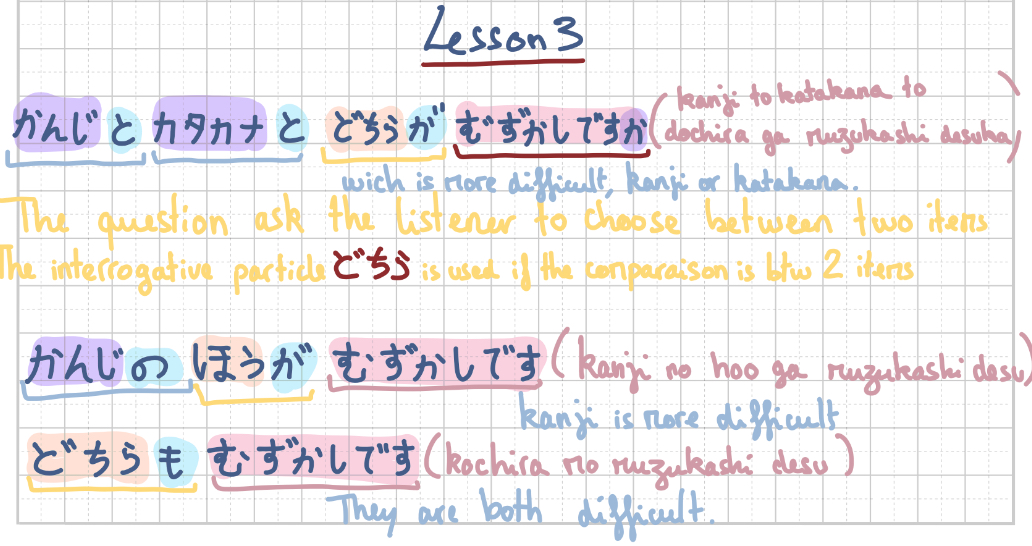 Lesson 3
かんじと カタカナと どちらが むずかしですか (kanji to katakana to
dochira ga muzukashi desuka)
wich is more difficult, kanji or katakana.
The question ask the listener to choose between two items
The interrogative particle どちら is used if the comparaison is btw 2 items
かんじの ほうが むずかしです (kanji no hoo ga muzukashi desu)
kanji is more difficult
どちらも むずかしです (kochira mo muzukashi desu)
They are both difficult.